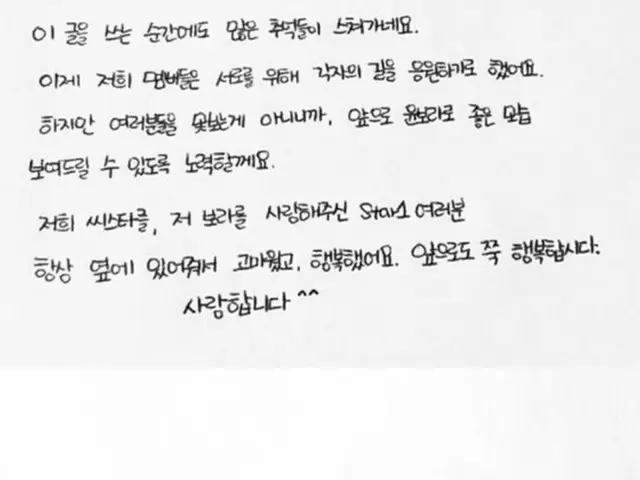 이 글을 쓰는 순간에도 많은 추억들이 스쳐가네요.
이제 저희 멤버들은 서로를 위해 각자의 길을 응원하기로 했어요.
하지만 여러분들을 못보는게 아니니까, 앞으로 윤보라로 좋은 모습
보여드릴 수 있도록 노력할게요.
저희 씨스타를, 저 보라를 사랑해주신 Star1 여러분
항상 옆에 있어줘서 고마웠고, 행복했어요. 앞으로도 쭉 행복합시다.
사랑합니다 ^^